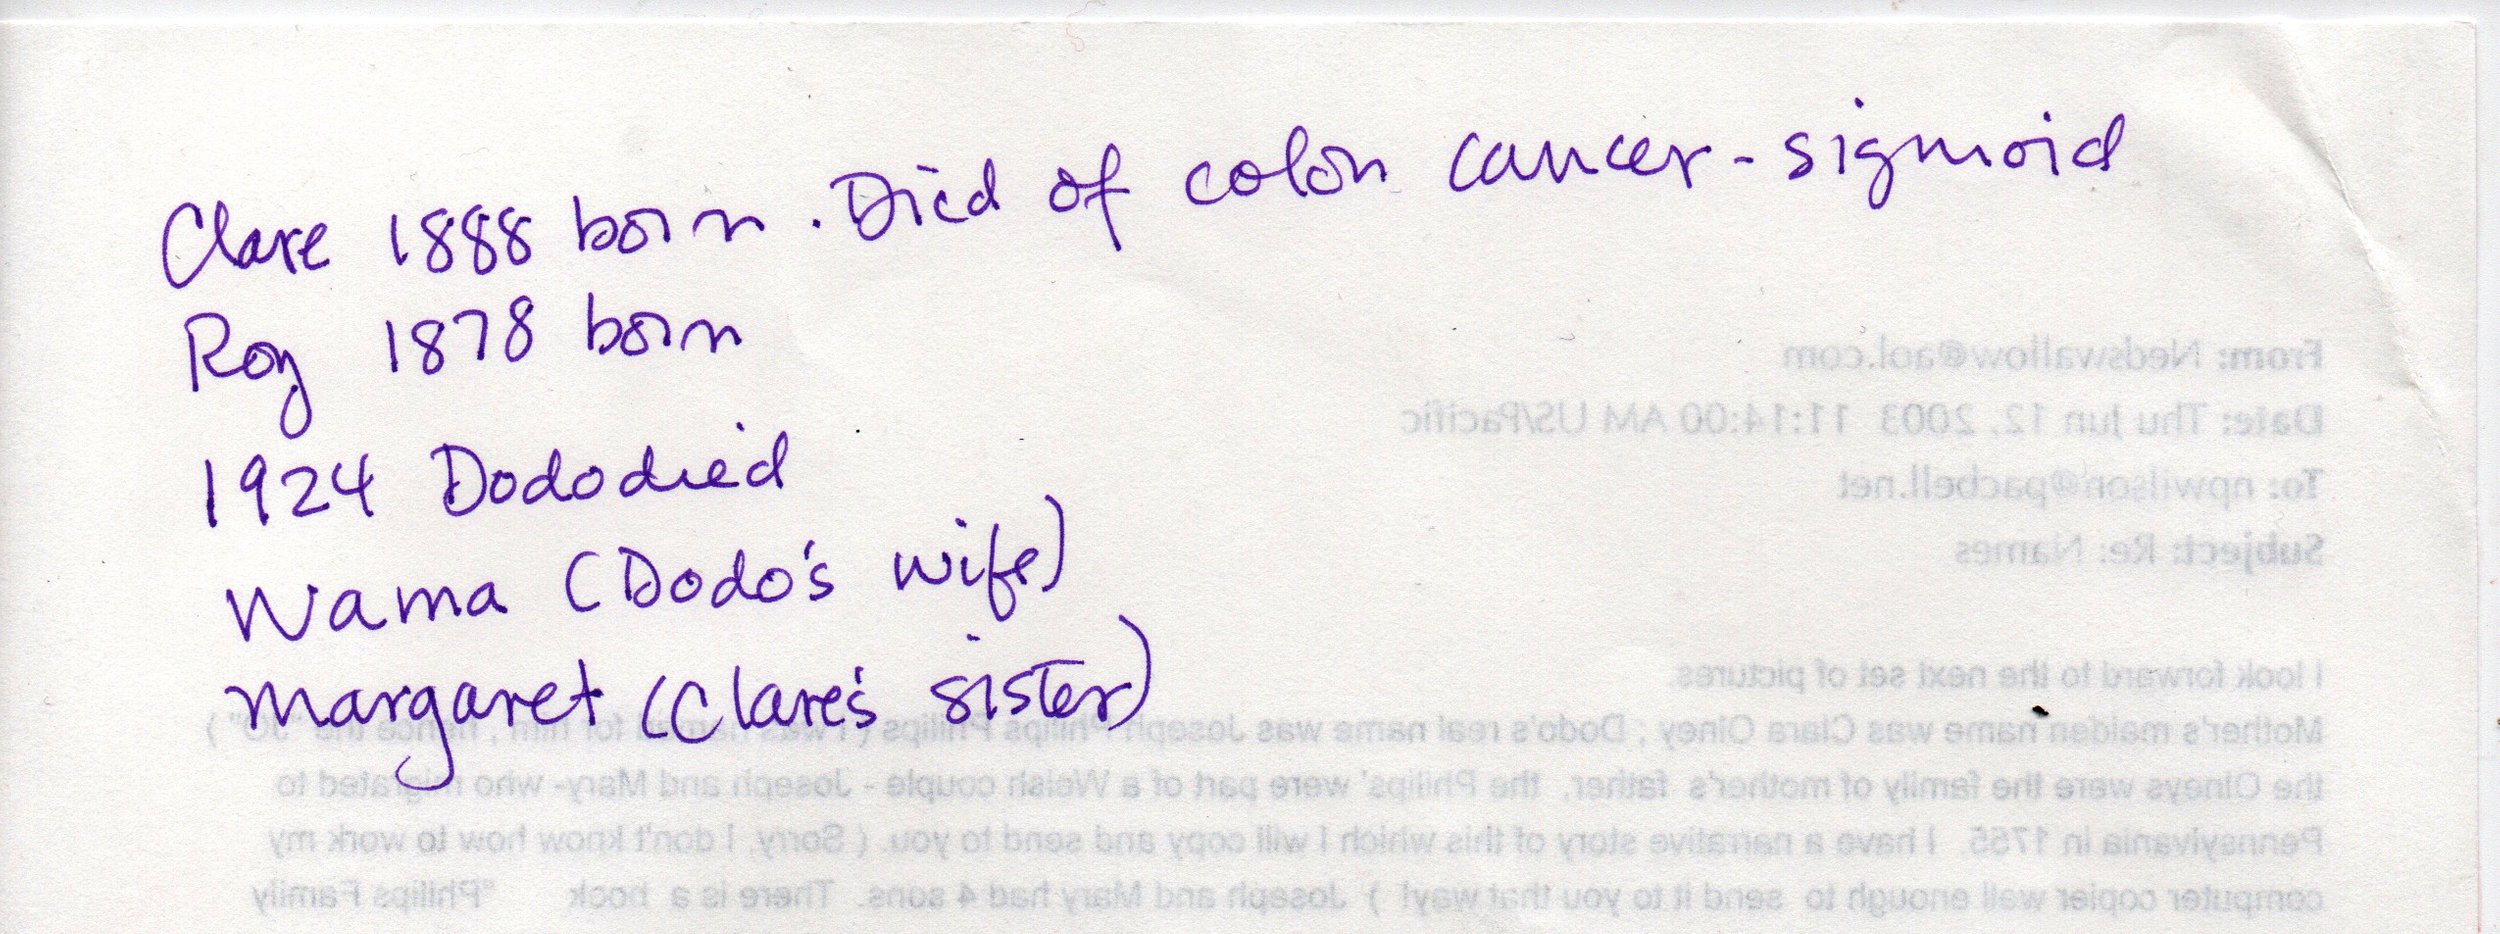 Clare 1888 born. Died of colon cancer - sigmoid
Roy 1878 born
1924 Dodo died
Wama (Dodo's wife)
Margaret (Clare's sister)
From: Nedswallow@aol.com
Date: Thu Jun 12, 2003 11:14:00 AM US/Pacific
To: npwilson@pacbell.net
Subject: Re: Names
I look forward to the next set of pictures.
Mother's maiden name was Clara Olney ; Dodo's real name was Joseph Phillips Philips ( I was named for him , hence the "JO" )
the Olneys were the family of mother's father. the Philips' were part of a Welsh couple - Joseph and Mary- who migrated to
Pennsylvania in 1755. I have a narrative story of this which I will copy and send to you. ( Sorry, I don't know how to work my
computer copier well enough to send it to you that way! ) Joseph and Mary had 4 sons. There is a book "Philips Family